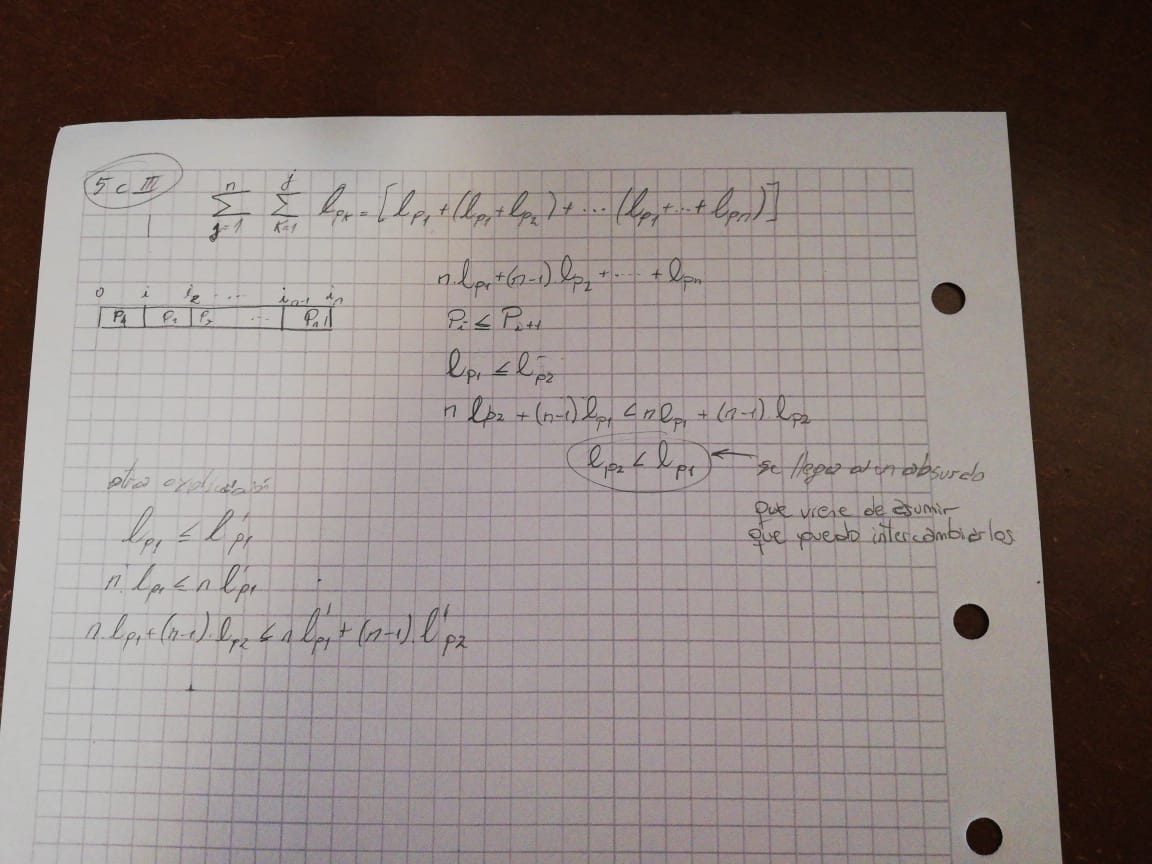 5 c III
n j
∑ ∑ l_pk = [l_p1 + (l_p1 + l_p2) + ... (l_p1 + ... + l_pn)]
j=1 k=1
n.l_p1 + (n-1) l_p2 + ..... + l_pn
0 i i_2 ..... i_n-1 i_n
P_i ≤ P_i+1
l_p1 ≤ l_p2
n l_p2 + (n-1) l_p1 < n l_p1 + (n-1) l_p2
l_p2 < l_p1 ← se llega a un absurdo
que viene de asumir
que puedo intercambiarlos
otra explicación
l_p1 ≤ l'_p1
n.l_p1 ≤ n l'_p1
n.l_p1 + (n-1).l_p2 ≤ n l'_p1 + (n-1).l'_p2